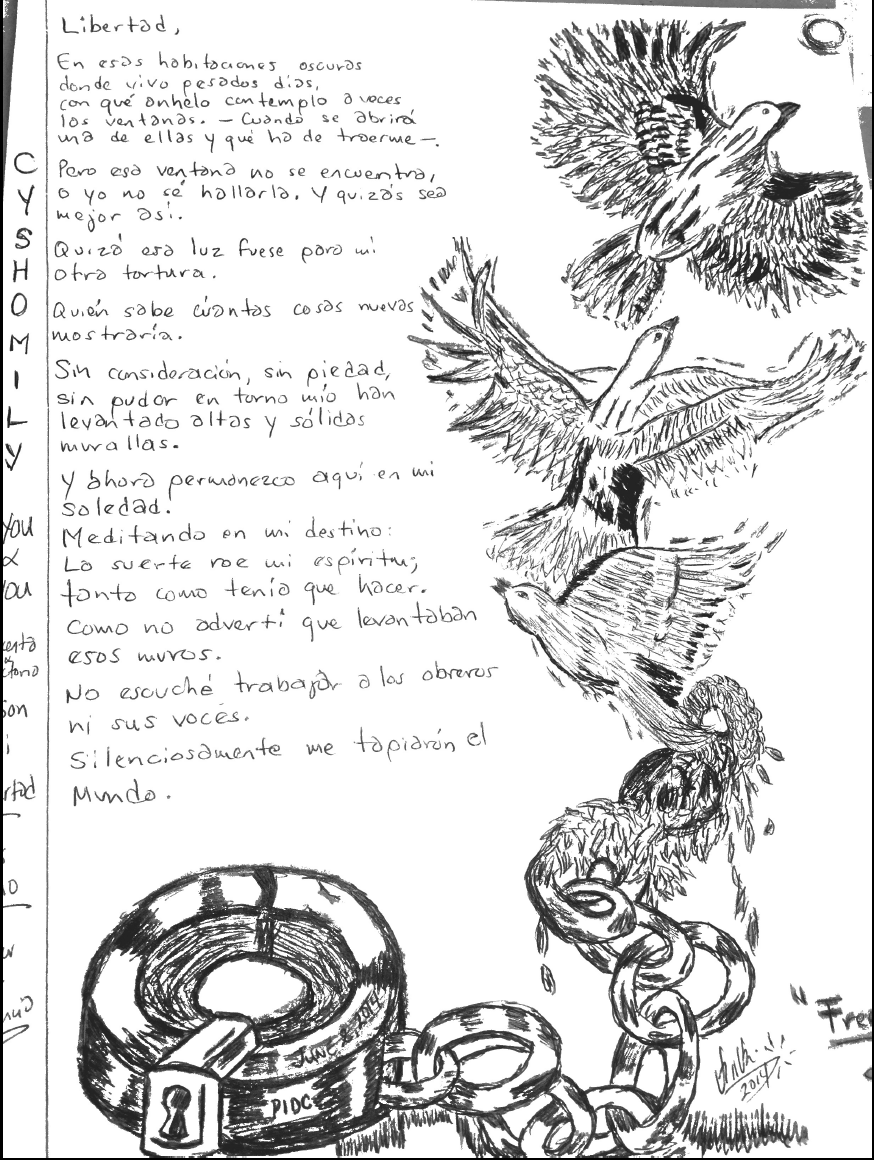 Libertad,
En esas habitaciones oscuras
donde vivo pesados días,
con qué anhelo contemplo a veces
las ventanas. – Cuando se abrirá
una de ellas y qué ha de traerme –.
Pero esa ventana no se encuentra,
o yo no sé hallarla. Y quizás sea
mejor así.
Quizá esa luz fuese para mi
otra tortura.
Quién sabe cuantas cosas nuevas
mostraría.
Sin consideración, sin piedad,
sin pudor en torno mío han
levantado altas y sólidas
murallas.
Y ahora permanezco aquí en mi
soledad.
Meditando en mi destino:
La suerte roe mi espíritu;
tanto como tenía que hacer.
Como no advertí que levantaban
esos muros.
No escuché trabajar a los obreros
ni sus voces.
Silenciosamente me tapiarón el
Mundo.
CYSHOMILY
you
&
ou
son
JUNE 2, 2014
PIDC
2014
"Free